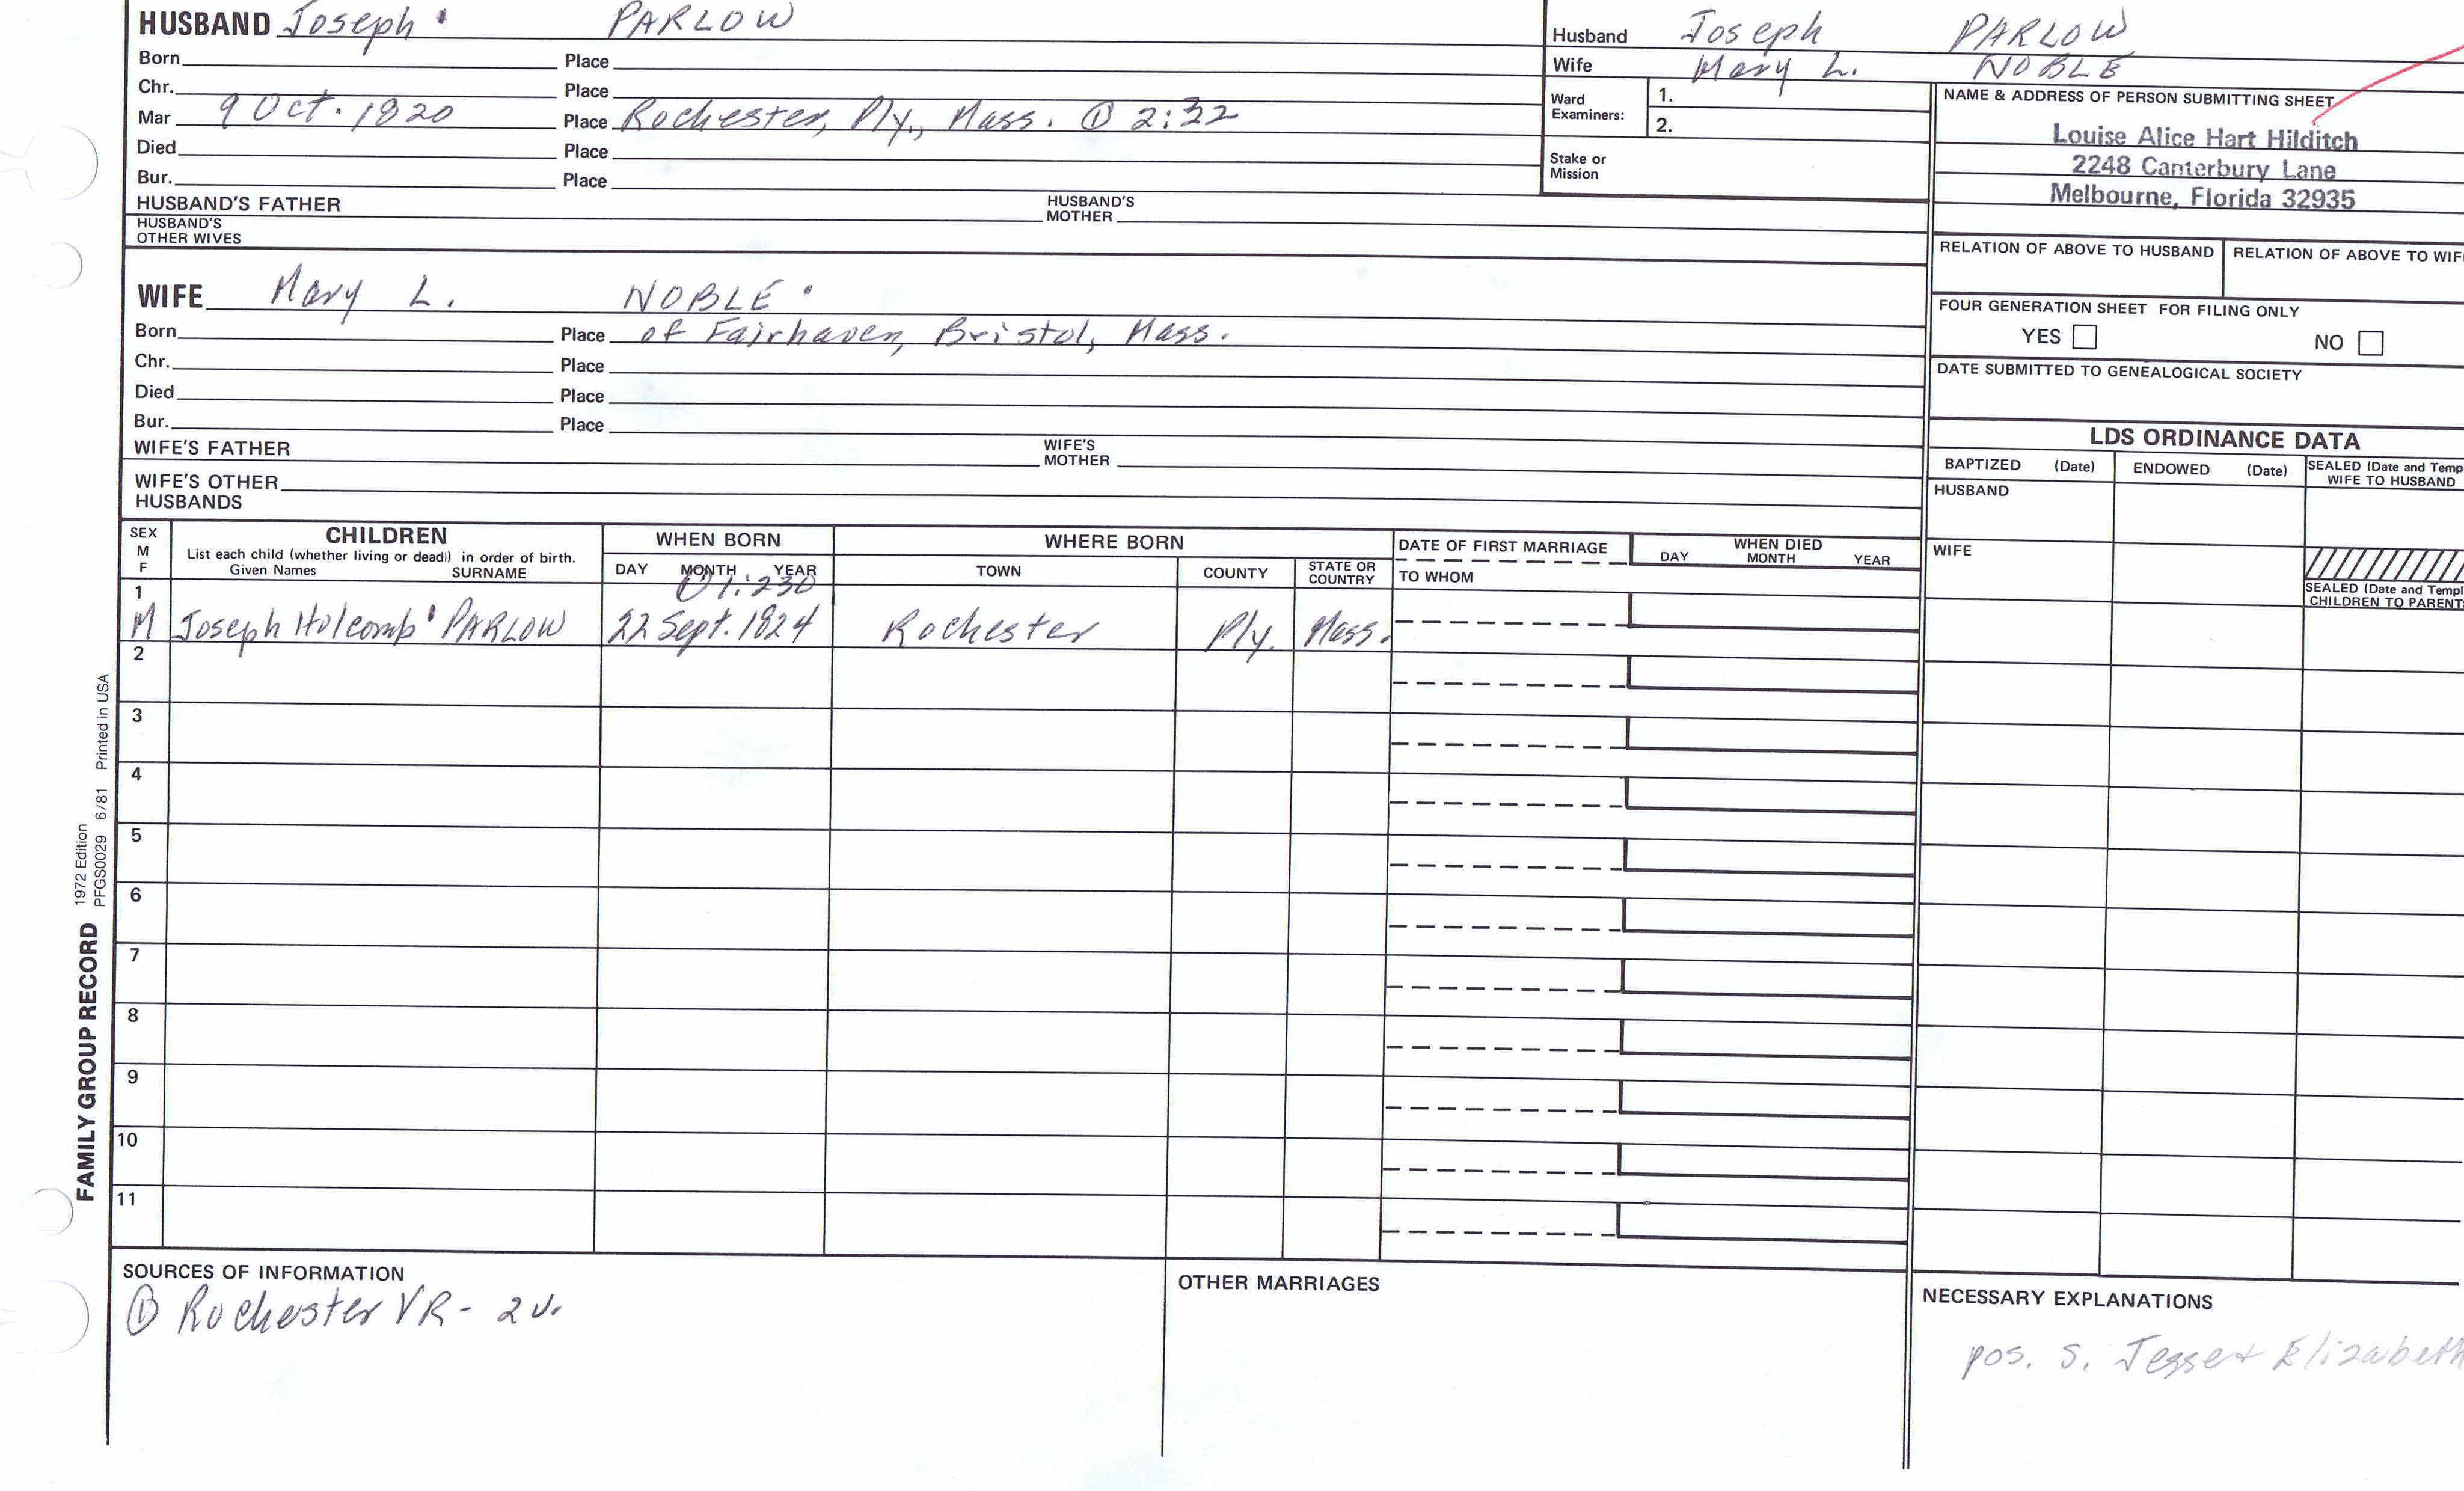 HUSBAND Joseph PARLOW
Born Place
Chr. Place
Mar 9 Oct. 1820 Place Rochester, Ply., Mass. ① 2:32
Died Place
Bur. Place
HUSBAND'S FATHER HUSBAND'S MOTHER
HUSBAND'S OTHER WIVES
WIFE Mary L. NOBLE
Born Place of Fairhaven, Bristol, Mass.
Chr. Place
Died Place
Bur. Place
WIFE'S FATHER WIFE'S MOTHER
WIFE'S OTHER HUSBANDS
Husband Joseph PARLOW
Wife Mary L. NOBLE
Ward Examiners: 1.
2.
Stake or Mission
NAME & ADDRESS OF PERSON SUBMITTING SHEET
Louise Alice Hart Hilditch
2248 Canterbury Lane
Melbourne, Florida 32935
RELATION OF ABOVE TO HUSBAND RELATION OF ABOVE TO WIF
FOUR GENERATION SHEET FOR FILING ONLY
YES NO
DATE SUBMITTED TO GENEALOGICAL SOCIETY
LDS ORDINANCE DATA
BAPTIZED (Date) ENDOWED (Date) SEALED (Date and Temp
WIFE TO HUSBAND
HUSBAND
WIFE
SEALED (Date and Templ
CHILDREN TO PARENT
SEX M F
CHILDREN
List each child (whether living or dead) in order of birth.
Given Names SURNAME
WHEN BORN
DAY MONTH YEAR
WHERE BORN
TOWN COUNTY STATE OR COUNTRY
DATE OF FIRST MARRIAGE
TO WHOM
WHEN DIED
DAY MONTH YEAR
① 1:230
1 M Joseph Holcomb PARLOW 22 Sept. 1824 Rochester Ply. Mass.
2
3
4
5
6
7
8
9
10
11
FAMILY GROUP RECORD
1972 Edition
PFGS0029 6/81 Printed in USA
SOURCES OF INFORMATION
① Rochester VR - 2 v.
OTHER MARRIAGES
NECESSARY EXPLANATIONS
pos. s. Jesse & Elizabeth